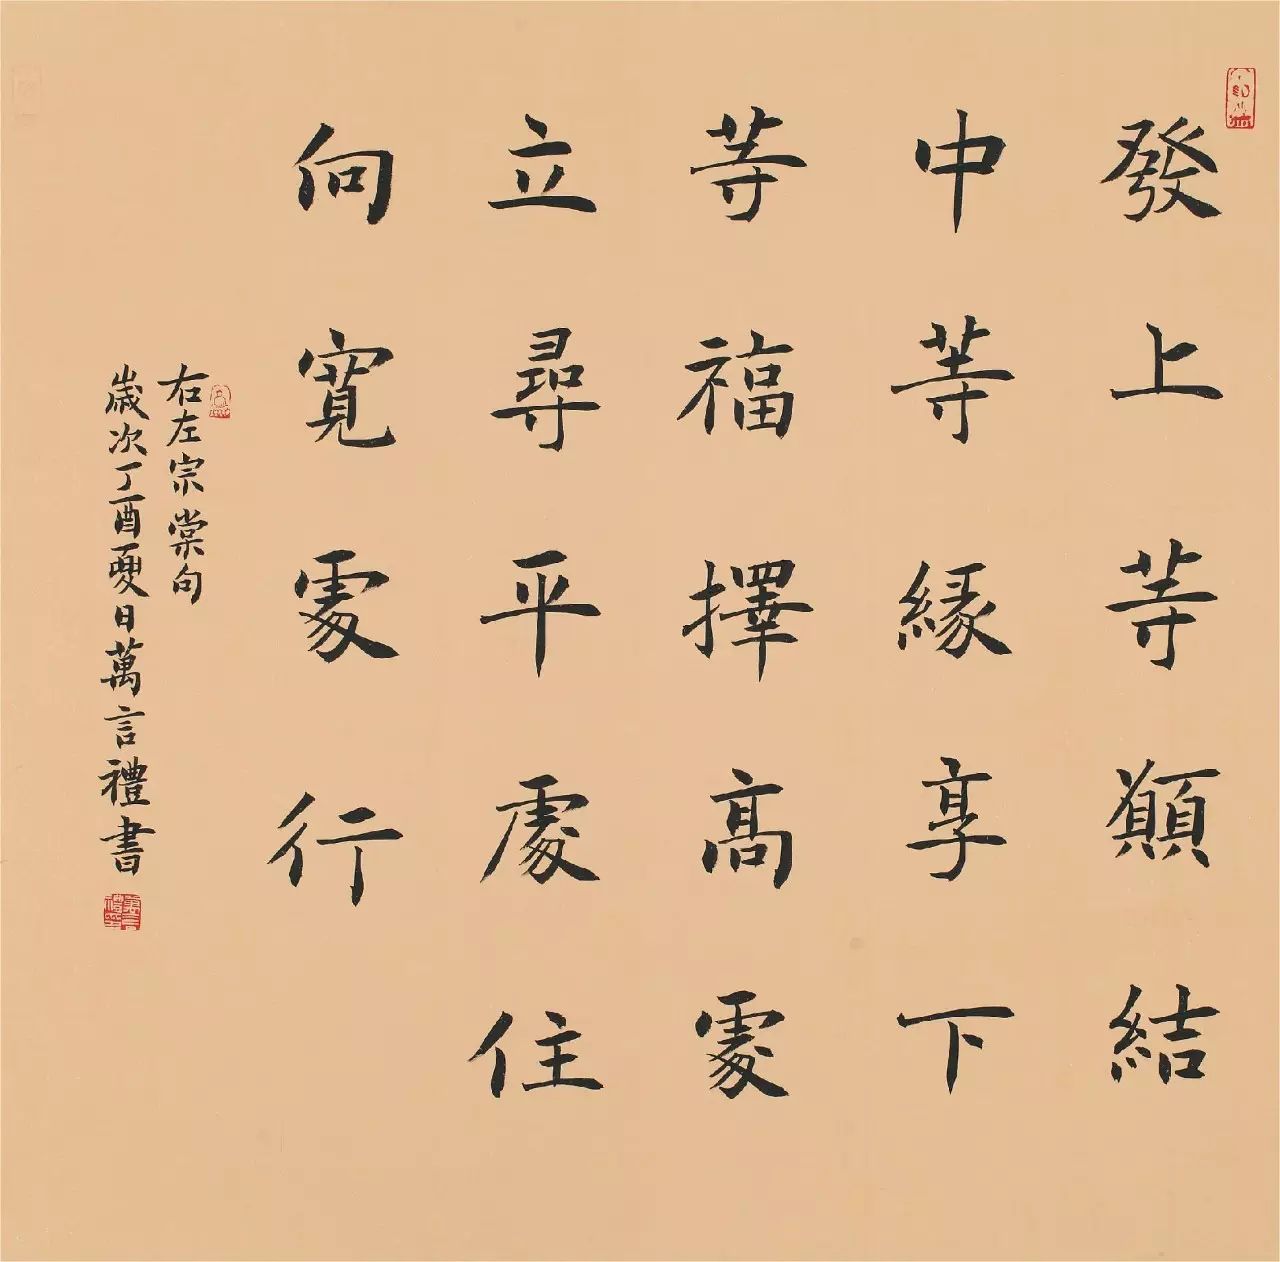 發上等願結
中等緣享下
等福擇高處
立尋平處住
向寬處行
右左宗棠句
歲次丁酉夏日萬言禮書